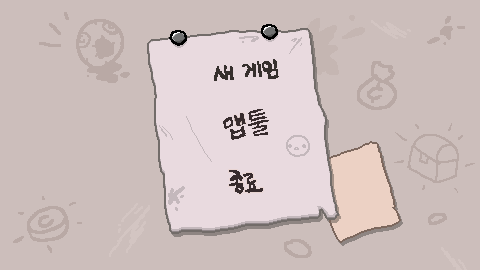 새 게임
맵툴
종료